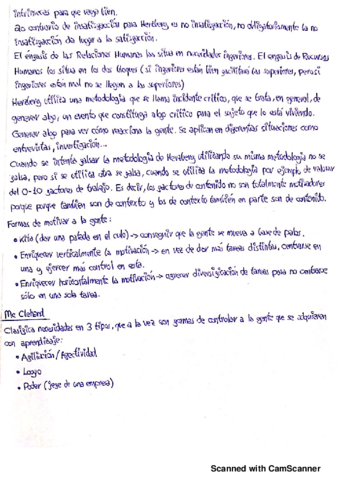 intrínsecos para que vaya bien.
Lo contrario de insatisfacción para Herzberg es no insatisfacción, no obligatoriamente la no
insatisfacción da lugar a la satisfacción.
El enfoque de las Relaciones Humanas los sitúa en necesidades inferiores. El enfoque de Recursos
Humanos los sitúa en los dos bloques (si inferiores están bien facilitará las superiores, pero si
inferiores están mal no se llegan a las superiores)
Herzberg utiliza una metodología que se llama incidente crítico, que se trata, en general, de
generar algo, un evento que constituya algo crítico para el sujeto que lo está viviendo.
Generar algo para ver cómo reacciona la gente. Se aplican en diferentes situaciones como
entrevistas, investigación...
Cuando se intenta falsar la metodología de Herzberg utilizando su misma metodología no se
falsa, pero si se utiliza otra se falsa, cuando se utiliza la metodología por ejemplo de valorar
del 0-10 factores de trabajo. Es decir, los factores de contenido no son totalmente motivadores
porque porque también son de contexto y los de contexto también en parte son de contenido.
Formas de motivar a la gente:
• Kita (dar una patada en el culo) → conseguir que la gente se mueva a base de palos.
• Enriquecer verticalmente la motivación → en vez de dar más tareas distintas, centrarse en
una y ejercer más control en esta.
• Enriquecer horizontalmente la motivación → generar diversificación de tareas para no centrarse
sólo en una sola tarea.
Mc Clelland
Clasifica necesidades en 3 tipos, que a la vez son formas de controlar a la gente que se adquieren
con aprendizaje:
• Afiliación / Afectividad
• Logro
• Poder (jefe de una empresa)
Scanned with CamScanner